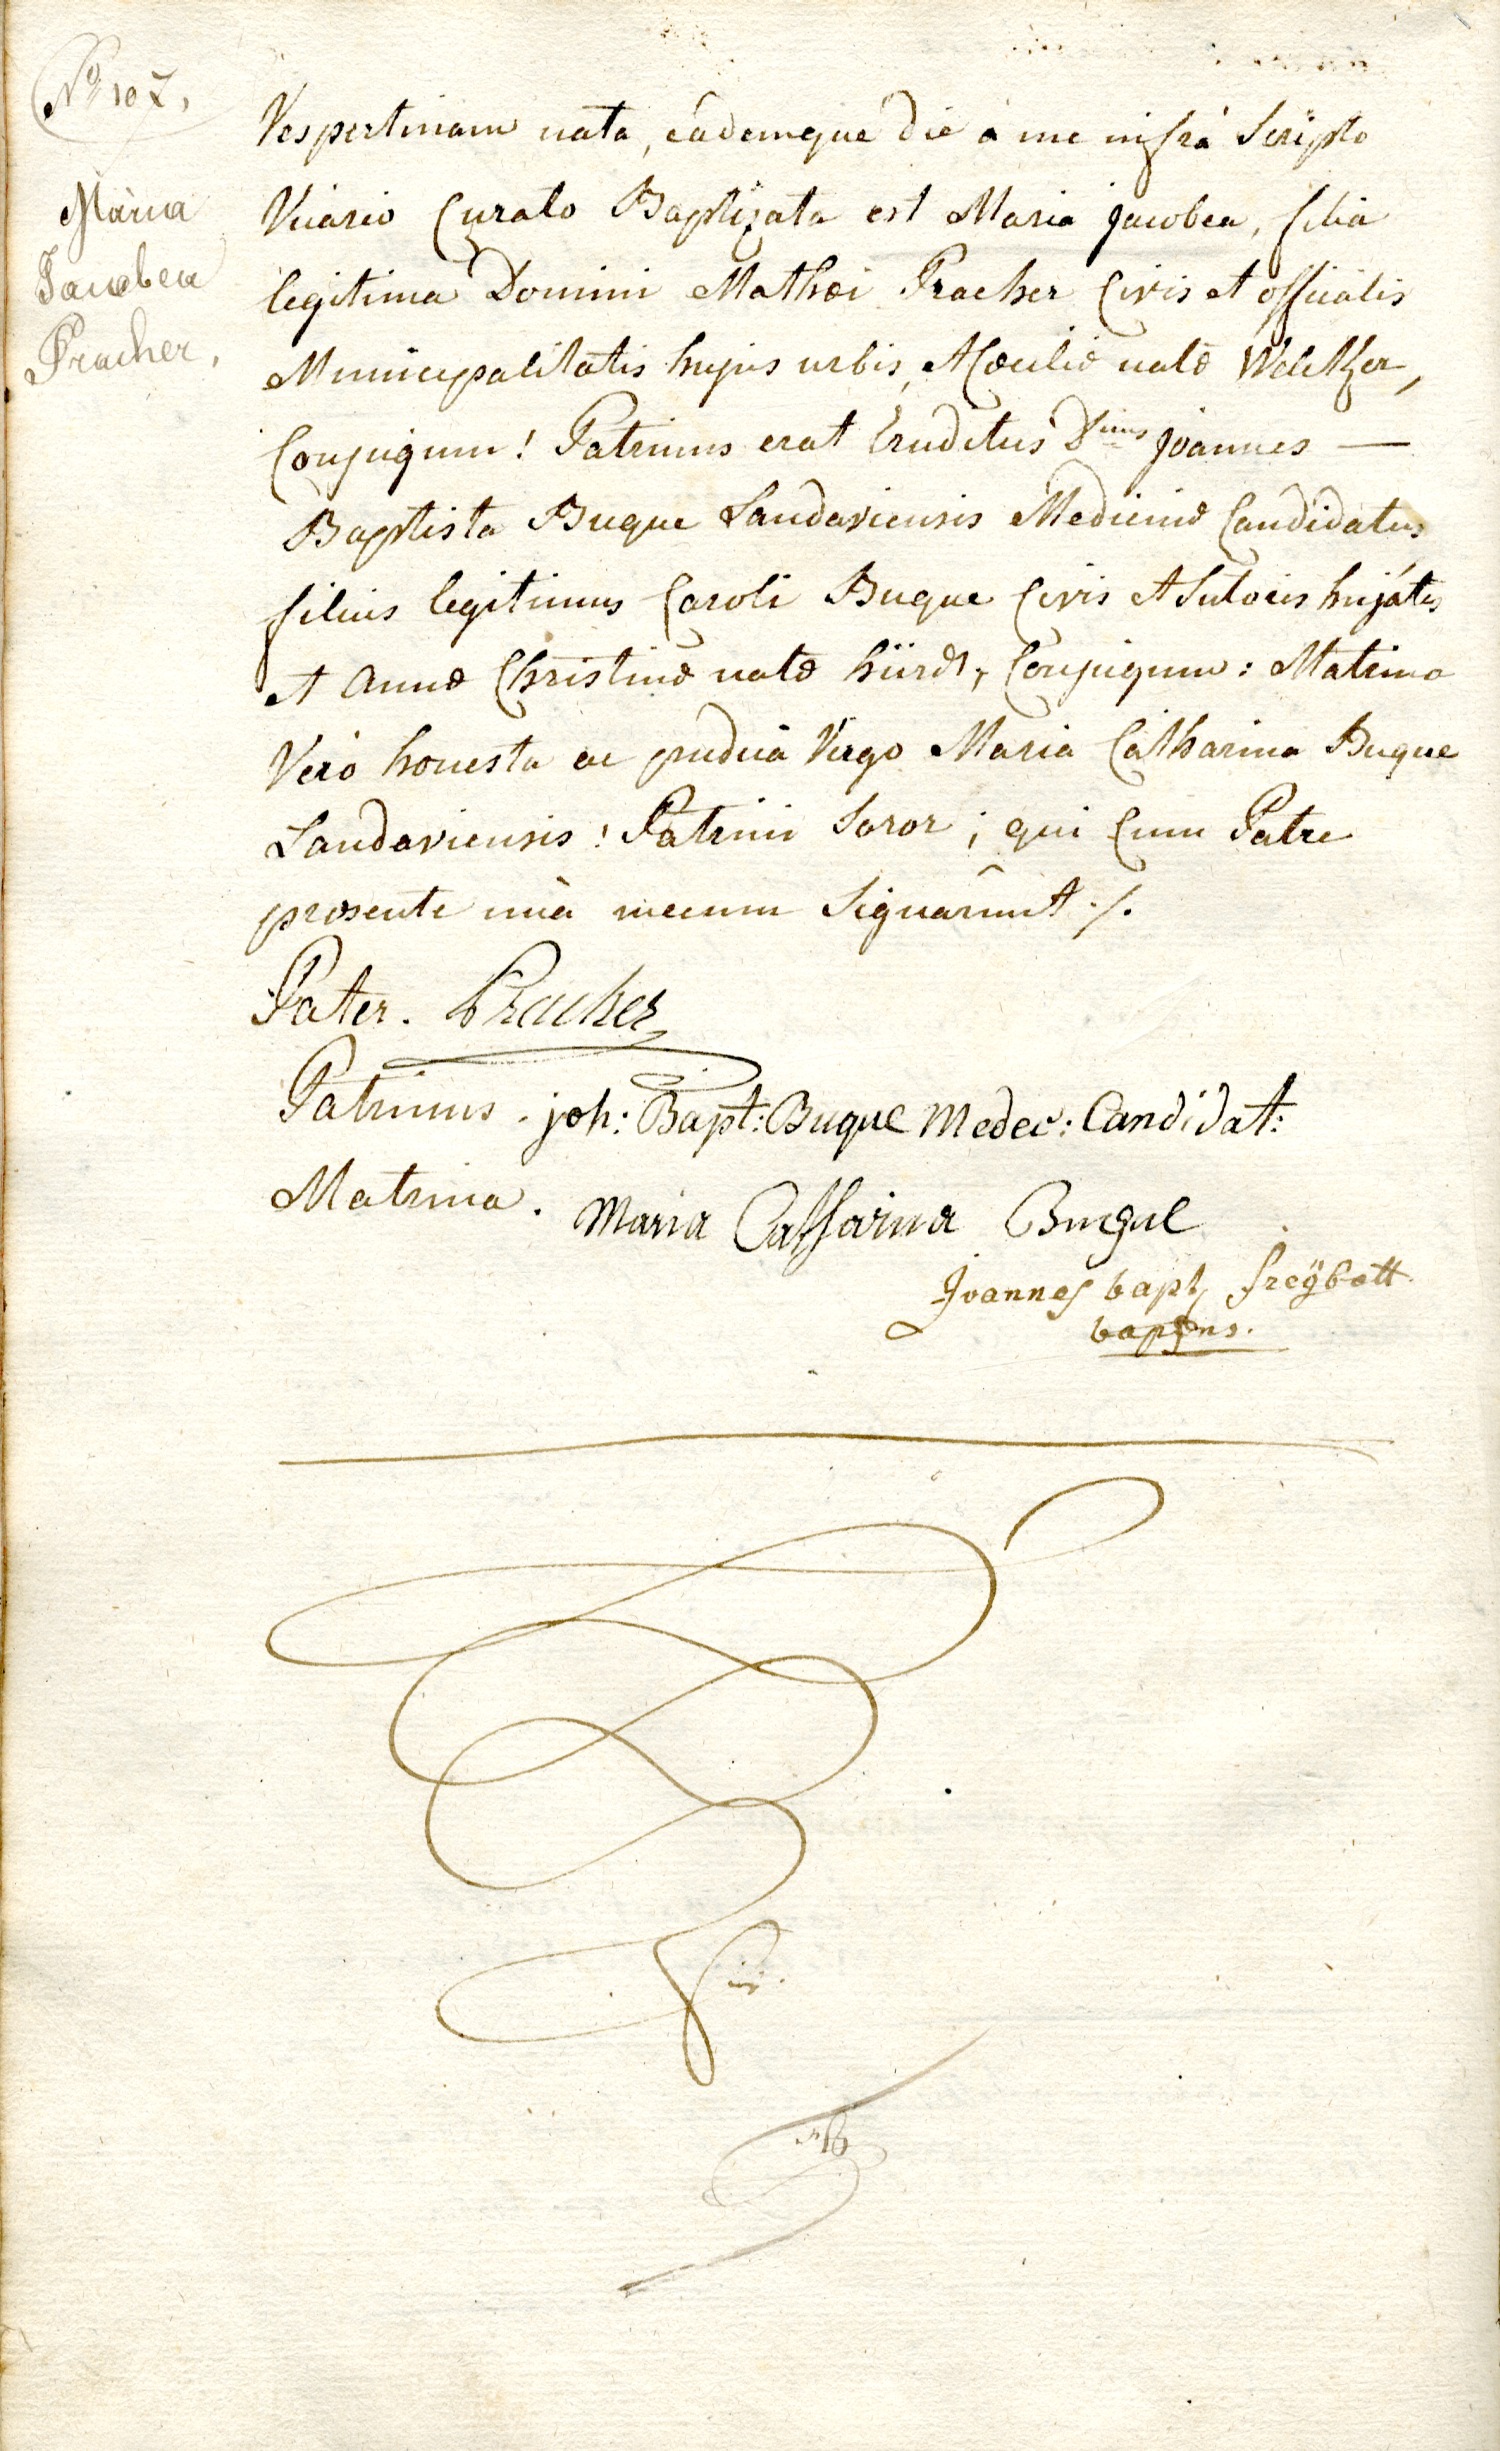 No 107,
Maria
Jacobea
Pracher,
Vespertinam nata, eâdemque die à me infrà Scripto
Vicario Curato Baptizata est Maria jacobea, filia
legitima Domini Mathæi Pracher Civis et officialis
Municipalitatis hujus urbis, et Cæciliæ natæ Weltzer,
Conjugum! Patrinus erat Eruditus Dnus joannes —
Baptista Buque Landaviensis Medicinæ Candidatus
filius legitimus Caroli Buque Civis et Sutoris hujátis
et annæ Christinæ natæ hürdt, Conjugum: Matrina
Verò honesta ac pudica Virgo Maria Catharina Buque
Landaviensis! Patrini Soror; qui Cum Patre
præsente unà mecum Signarûnt ./.
Pater. Pracher
Patrinus. joh: Bapt: Buque Medec: Candidat:
Matrina. Maria Catharina Buque
Joannes bapt freÿbott
bapzns.